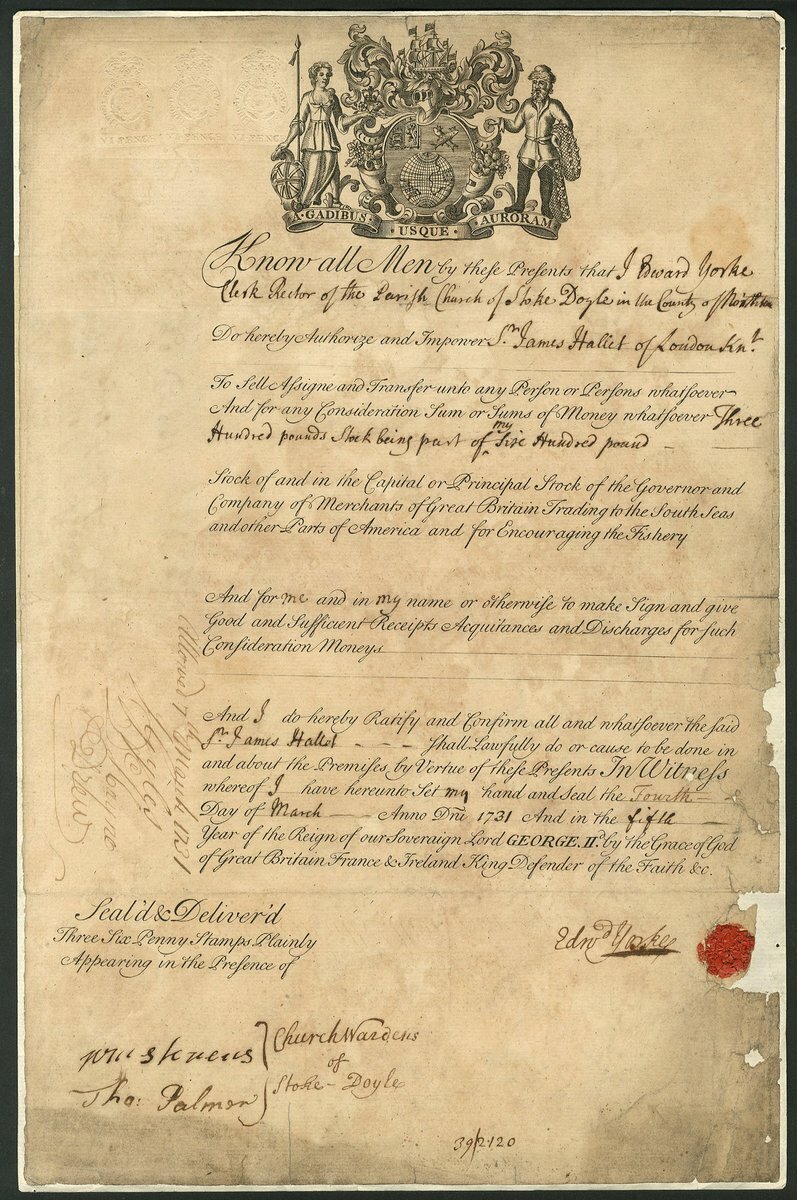 VI PENCE VI PENCE VI PENCE
A·GADIBUS· ·USQUE· AURORAM·
Know all Men by these Presents that I Edward Yorke
Clerk Rector of the Parish Church of Stoke Doyle in the County of
Do hereby Authorize and Impower Sr. James Hallet of London Knt.
To Sell Assigne and Transfer unto any Person or Persons whatsoever
And for any Consideration Sum or Sums of Money whatsoever Three
Hundred pounds Stock being part of my Six Hundred pound
Stock of and in the Capital or Principal Stock of the Governor and
Company of Merchants of Great Britain Trading to the South Seas
and other Parts of America and for Encouraging the Fishery
And for me and in my name or otherwise to make Sign and give
Good and Sufficient Receipts Acquitances and Discharges for such
Consideration Moneys
And I do hereby Ratify and Confirm all and whatsoever the said
Sr. James Hallet - - - Shall Lawfully do or cause to be done in
and about the Premises by Vertue of these Presents In Witness
whereof I have hereunto Set my hand and Seal the Fourth
Day of March Anno Dni 1731 And in the fifth
Year of the Reign of our Soveraign Lord GEORGE. IId. by the Grace of God
of Great Britain France & Ireland King Defender of the Faith &c.
Allowed 7th March 1731
Drew
Seal'd & Deliver'd
Three Six Penny Stamps Plainly
Appearing in the Presence of
Edwd Yorke
Wm Stevens
Tho: Palmer
Church Wardens
of
Stoke-Doyle
39/2120